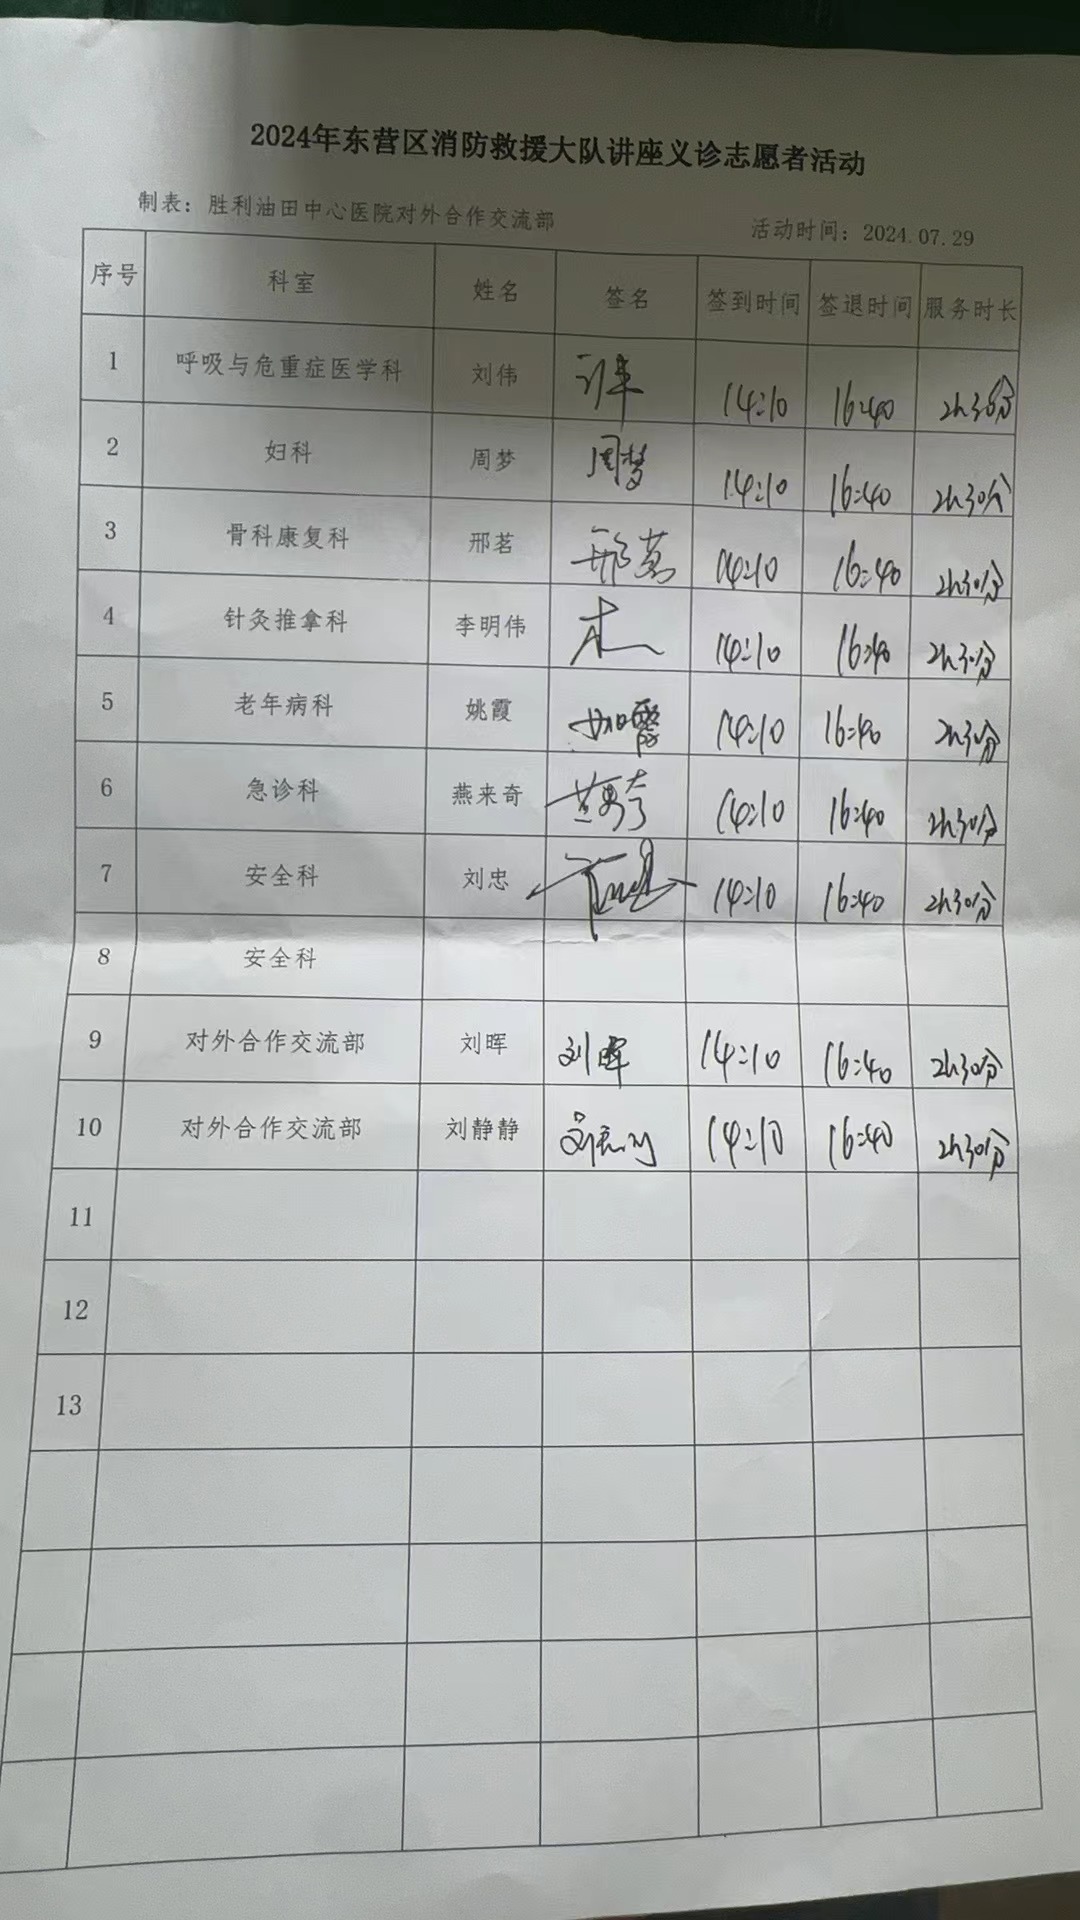 2024年东营区消防救援大队讲座义诊志愿者活动
制表：胜利油田中心医院对外合作交流部 活动时间：2024.07.29
序号 科室 姓名 签名 签到时间 签退时间 服务时长
1 呼吸与危重症医学科 刘伟 14:10 16:40 2h30分
2 妇科 周梦 周梦 14:10 16:40 2h30分
3 骨科康复科 邢茗 邢茗 14:10 16:40 2h30分
4 针灸推拿科 李明伟 14:10 16:40 2h30分
5 老年病科 姚霞 姚霞 14:10 16:40 2h30分
6 急诊科 燕来奇 14:10 16:40 2h30分
7 安全科 刘忠 14:10 16:40 2h30分
8 安全科
9 对外合作交流部 刘晖 刘晖 14:10 16:40 2h30分
10 对外合作交流部 刘静静 14:10 16:40 2h30分
11
12
13